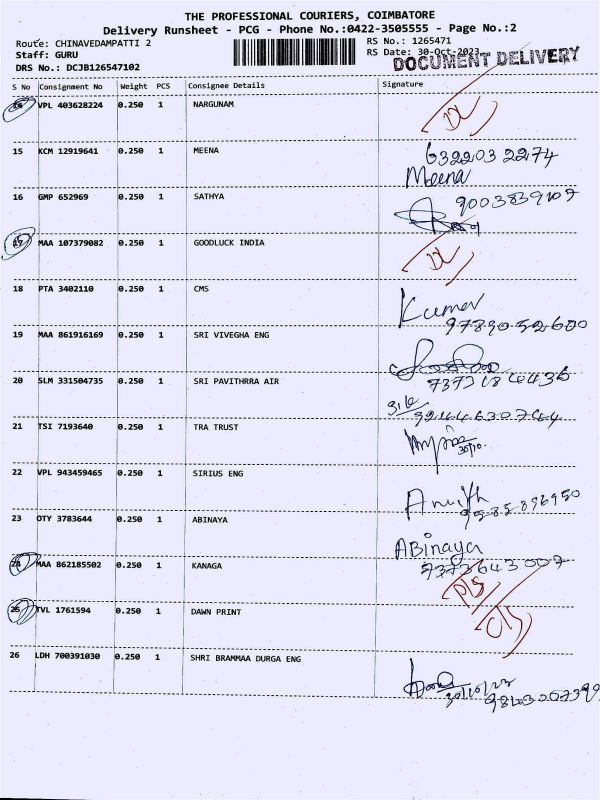 THE PROFESSIONAL COURIERS, COIMBATORE
Delivery Runsheet - PCG - Phone No.:0422-3505555 - Page No.:2
Route: CHINAVEDAMPATTI 2
RS No.: 1265471
Staff: GURU
RS Date: 30-Oct-2023
DRS No.: DCJB126547102
DOCUMENT DELIVERY
S No Consignment No Weight PCS Consignee Details Signature
14 VPL 403628224 0.250 1 NARGUNAM
DL
15 KCM 12919641 0.250 1 MEENA
6322032274
Meena
16 GMP 652969 0.250 1 SATHYA
9003839107
17 MAA 107379082 0.250 1 GOODLUCK INDIA
DL
18 PTA 3402110 0.250 1 CMS
Kumar
9789052600
19 MAA 861916169 0.250 1 SRI VIVEGHA ENG
20 SLM 331504735 0.250 1 SRI PAVITHRRA AIR
21 TSI 7193640 0.250 1 TRA TRUST
30/10.
22 VPL 943459465 0.250 1 SIRIUS ENG
9585896950
23 OTY 3783644 0.250 1 ABINAYA
ABinaya
7373643007
24 MAA 862185502 0.250 1 KANAGA
25 TVL 1761594 0.250 1 DAWN PRINT
26 LDH 700391030 0.250 1 SHRI BRAMMAA DURGA ENG
30/10/23